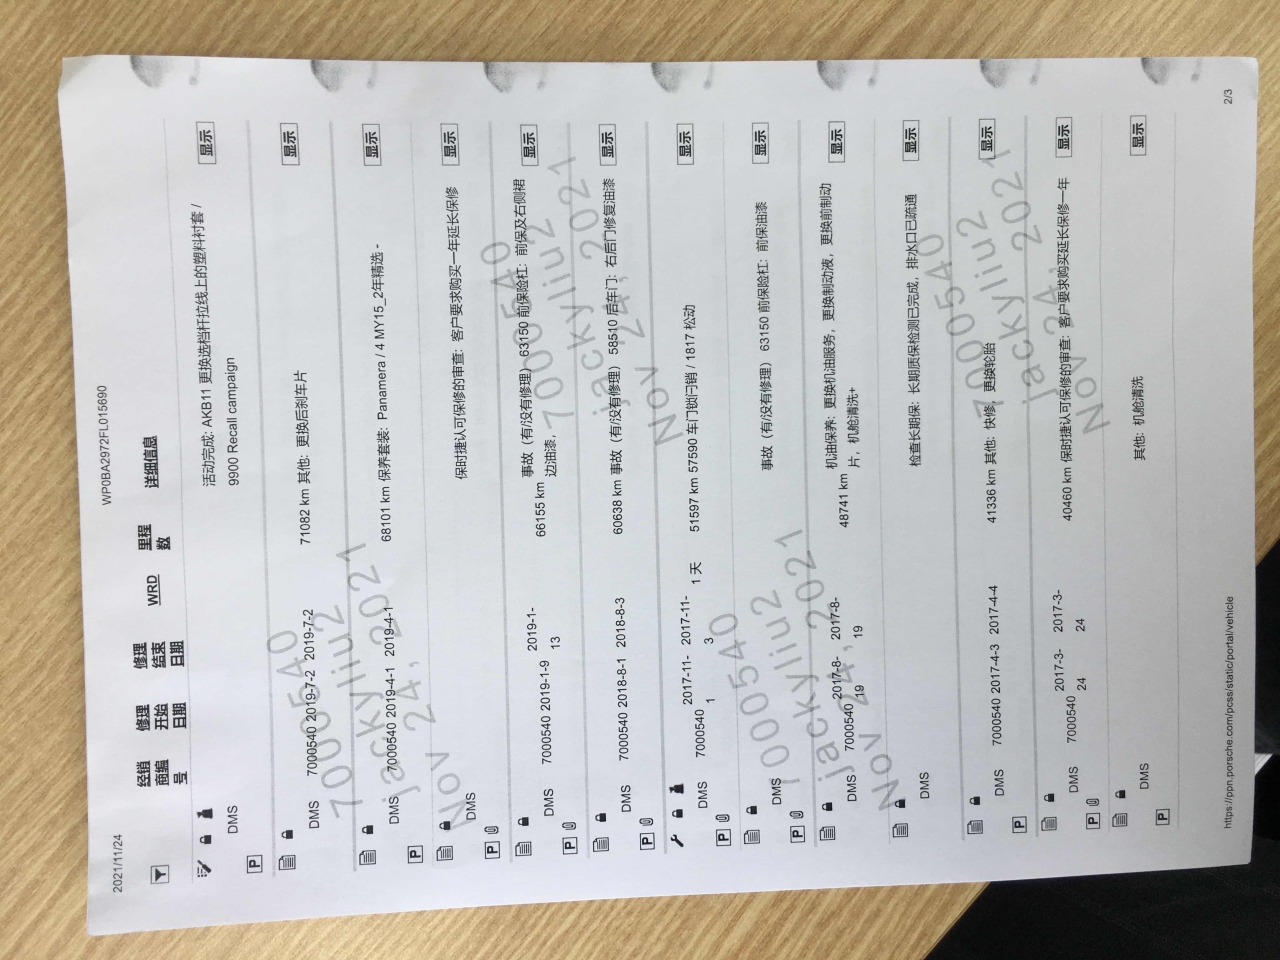 2021/11/24
WP0BA2972FL015690
经销商编号
修理开始日期
修理结束日期
WRD
里程数
详细信息
DMS
活动完成: AKB11 更换选档杆拉线上的塑料衬套 /
9900 Recall campaign
显示
P
DMS 7000540 2019-7-2 2019-7-2 71082 km 其他: 更换后刹车片 显示
DMS 7000540 2019-4-1 2019-4-1 68101 km 保养套装: Panamera / 4 MY15_2年精选 - 显示
P
DMS 保时捷认可保修的审查: 客户要求购买一年延长保修 显示
P
DMS 7000540 2019-1-9 2019-1-13 66155 km 事故 (有/没有修理) 63150 前保险杠: 前保及右侧裙
边油漆.
显示
P
DMS 7000540 2018-8-1 2018-8-3 60638 km 事故 (有/没有修理) 58510 后车门: 右后门修复油漆 显示
P
DMS 7000540 2017-11-1 2017-11-3 1 天 51597 km 57590 车门锁闩销 / 1817 松动 显示
P
DMS 事故 (有/没有修理) 63150 前保险杠: 前保油漆 显示
P
DMS 7000540 2017-8-19 2017-8-19 48741 km 机油保养: 更换机油服务, 更换制动液, 更换前制动
片, 机舱清洗+
显示
DMS 检查长期保: 长期质保检测已完成, 排水口已疏通 显示
DMS 7000540 2017-4-3 2017-4-4 41336 km 其他: 快修, 更换轮胎 显示
P
DMS 7000540 2017-3-24 2017-3-24 40460 km 保时捷认可保修的审查: 客户要求购买延长保修一年 显示
P
DMS 其他: 机舱清洗 显示
P
https://ppn.porsche.com/pcss/static/portal/vehicle
2/3
7000540
jackyliu2
Nov 24, 2021
7000540
jackyliu2
Nov 24, 2021
7000540
jackyliu2
Nov 24, 2021
7000540
jackyliu2
Nov 24, 2021